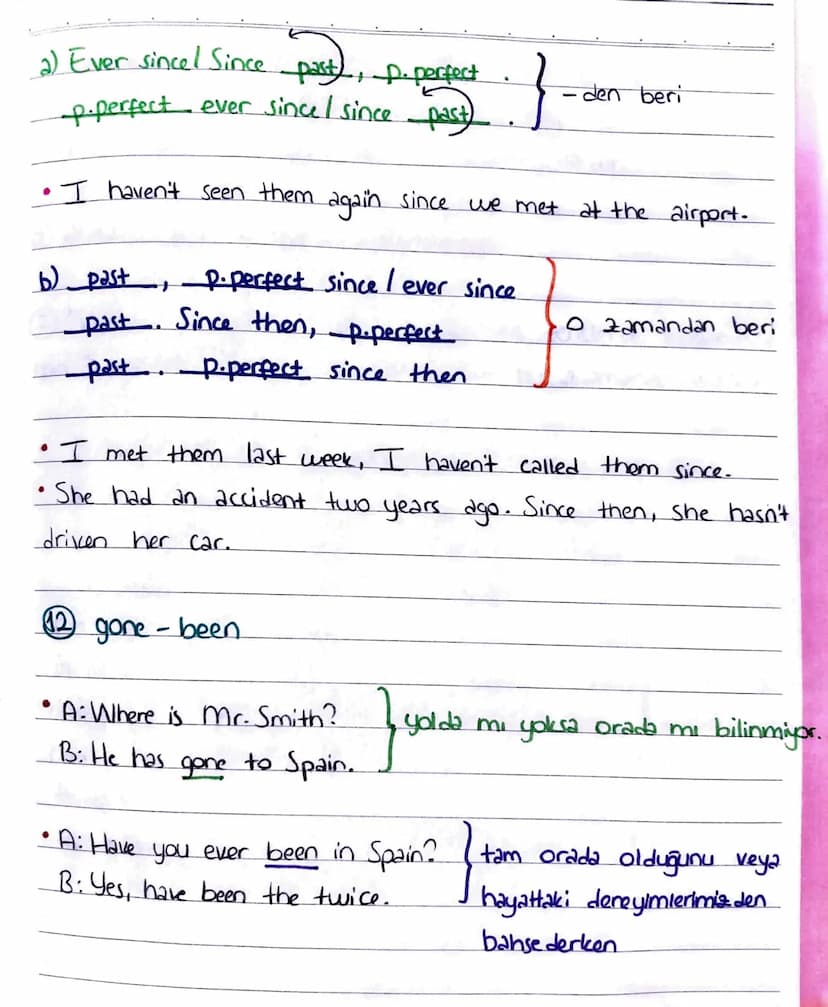 a) Ever since/ Since past, p.perfect .
p.perfect ever since/ since past .
} -den beri
• I haven't seen them again since we met at the airport.
b) past, p.perfect since/ ever since
past. Since then, p.perfect
past. p.perfect since then
} O zamandan beri
• I met them last week, I haven't called them since.
• She had an accident two years ago. Since then, she hasn't
driven her car.
12 gone - been
• A: Where is Mr. Smith?
B: He has gone to Spain.
} yolda mı yoksa orada mı bilinmiyor.
• A: Have you ever been in Spain?
B: Yes, have been the twice.
} tam orada olduğunu veya
hayattaki deneyimlerimizden
bahsederken